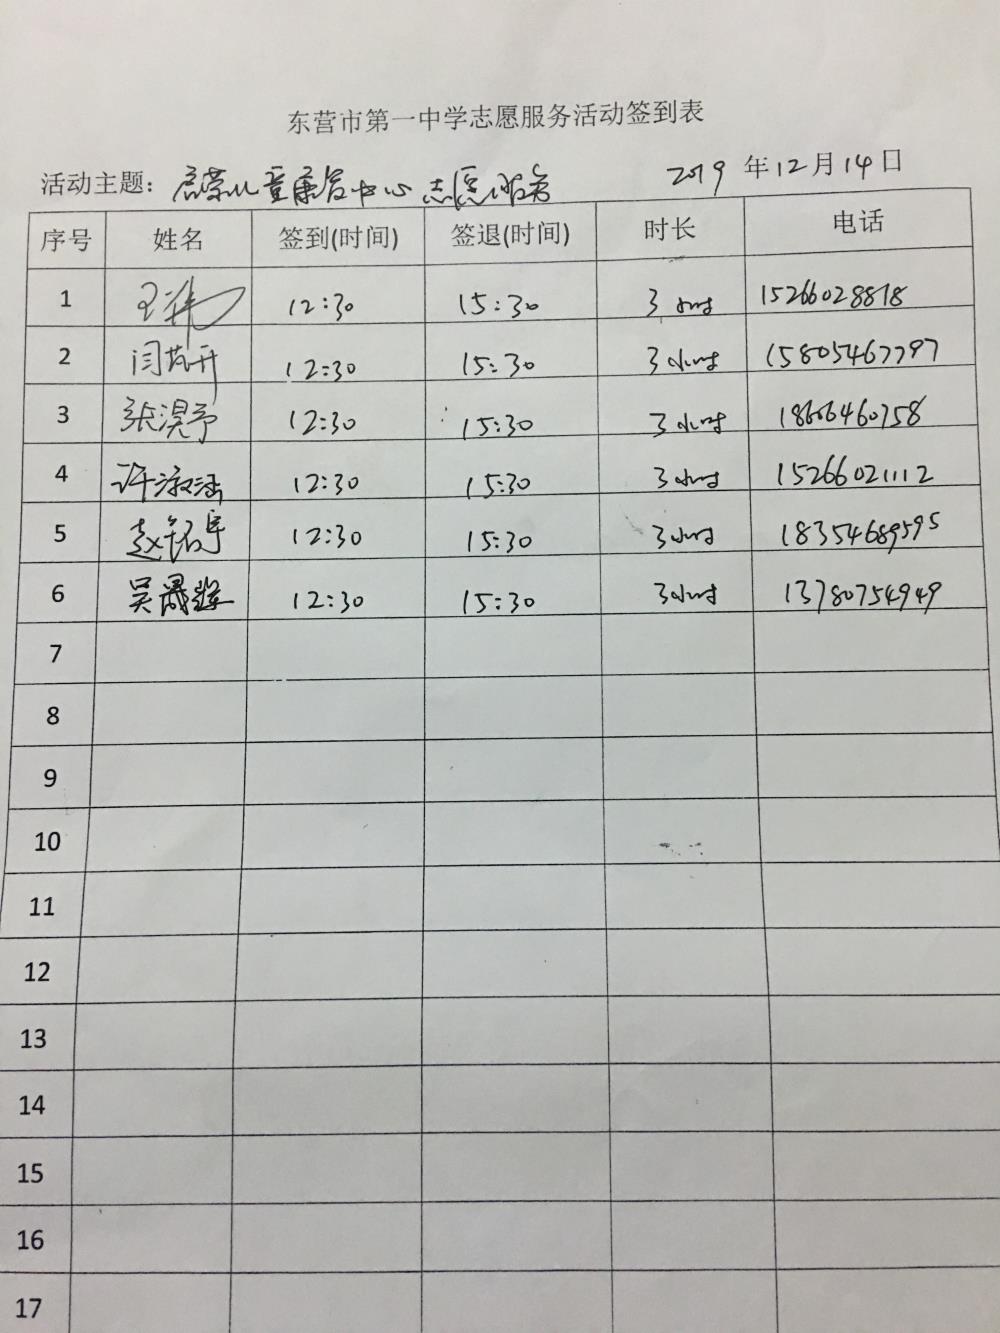 东营市第一中学志愿服务活动签到表
活动主题: 启蒙儿童康复中心志愿服务 2019 年12月14日
序号 姓名 签到(时间) 签退(时间) 时长 电话
1 12:30 15:30 3小时 15266028818
2 闫芃开 12:30 15:30 3小时 15805467797
3 张滉予 12:30 15:30 3小时 18606460758
4 许淑涵 12:30 15:30 3小时 15266021112
5 赵铭宇 12:30 15:30 3小时 18354689595
6 吴晟 12:30 15:30 3小时 13780754949
7
8
9
10
11
12
13
14
15
16
17